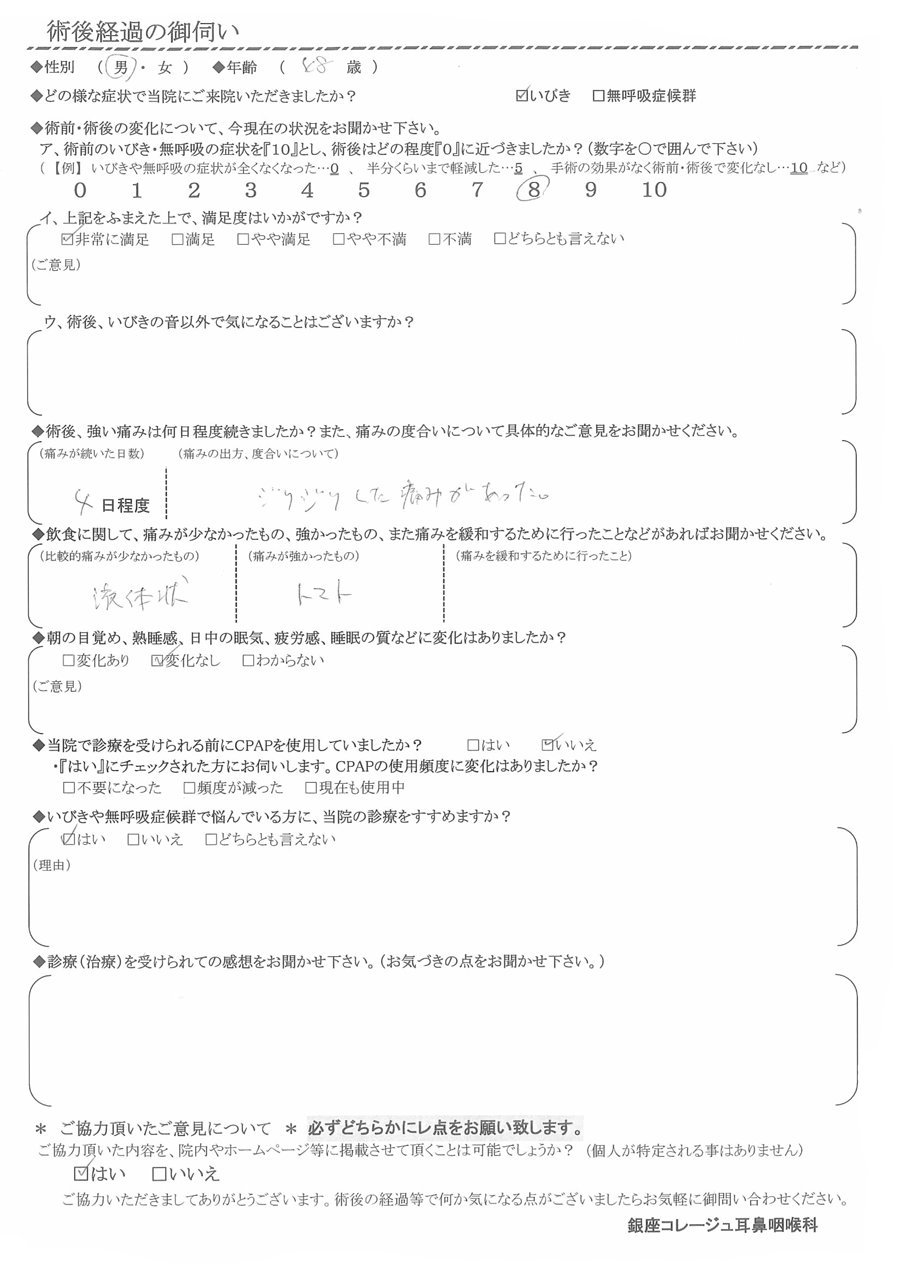 術後経過の御伺い
◆性別 （ 男 ・ 女 ） ◆年齢 （ 歳 ）
◆どの様な症状で当院にご来院いただきましたか？ ☑いびき □無呼吸症候群
◆術前・術後の変化について、今現在の状況をお聞かせ下さい。
ア、術前のいびき・無呼吸の症状を『10』とし、術後はどの程度『0』に近づきましたか？（数字を〇で囲んで下さい）
（ 【例】 いびきや無呼吸の症状が全くなくなった…0 、 半分くらいまで軽減した…5 、 手術の効果がなく術前・術後で変化なし…10 など）
0 1 2 3 4 5 6 7 8 9 10
イ、上記をふまえた上で、満足度はいかがですか？
☑非常に満足 □満足 □やや満足 □やや不満 □不満 □どちらとも言えない
（ご意見）
ウ、術後、いびきの音以外で気になることはございますか？
◆術後、強い痛みは何日程度続きましたか？また、痛みの度合いについて具体的なご意見をお聞かせください。
（痛みが続いた日数） （痛みの出方、度合いについて）
4 日程度 ジリジリした痛みがあった。
◆飲食に関して、痛みが少なかったもの、強かったもの、また痛みを緩和するために行ったことなどがあればお聞かせください。
（比較的痛みが少なかったもの） （痛みが強かったもの） （痛みを緩和するために行ったこと）
液体状 トマト
◆朝の目覚め、熟睡感、日中の眠気、疲労感、睡眠の質などに変化はありましたか？
□変化あり ☑変化なし □わからない
（ご意見）
◆当院で診療を受けられる前にCPAPを使用していましたか？ □はい ☑いいえ
・『はい』にチェックされた方にお伺いします。CPAPの使用頻度に変化はありましたか？
□不要になった □頻度が減った □現在も使用中
◆いびきや無呼吸症候群で悩んでいる方に、当院の診療をすすめますか？
☑はい □いいえ □どちらとも言えない
（理由）
◆診療（治療）を受けられての感想をお聞かせ下さい。（お気づきの点をお聞かせ下さい。）
＊ ご協力頂いたご意見について ＊ 必ずどちらかにレ点をお願い致します。
ご協力頂いた内容を、院内やホームページ等に掲載させて頂くことは可能でしょうか？ （個人が特定される事はありません）
☑はい □いいえ
ご協力いただきましてありがとうございます。術後の経過等で何か気になる点がございましたらお気軽に御問い合わせください。
銀座コレージュ耳鼻咽喉科